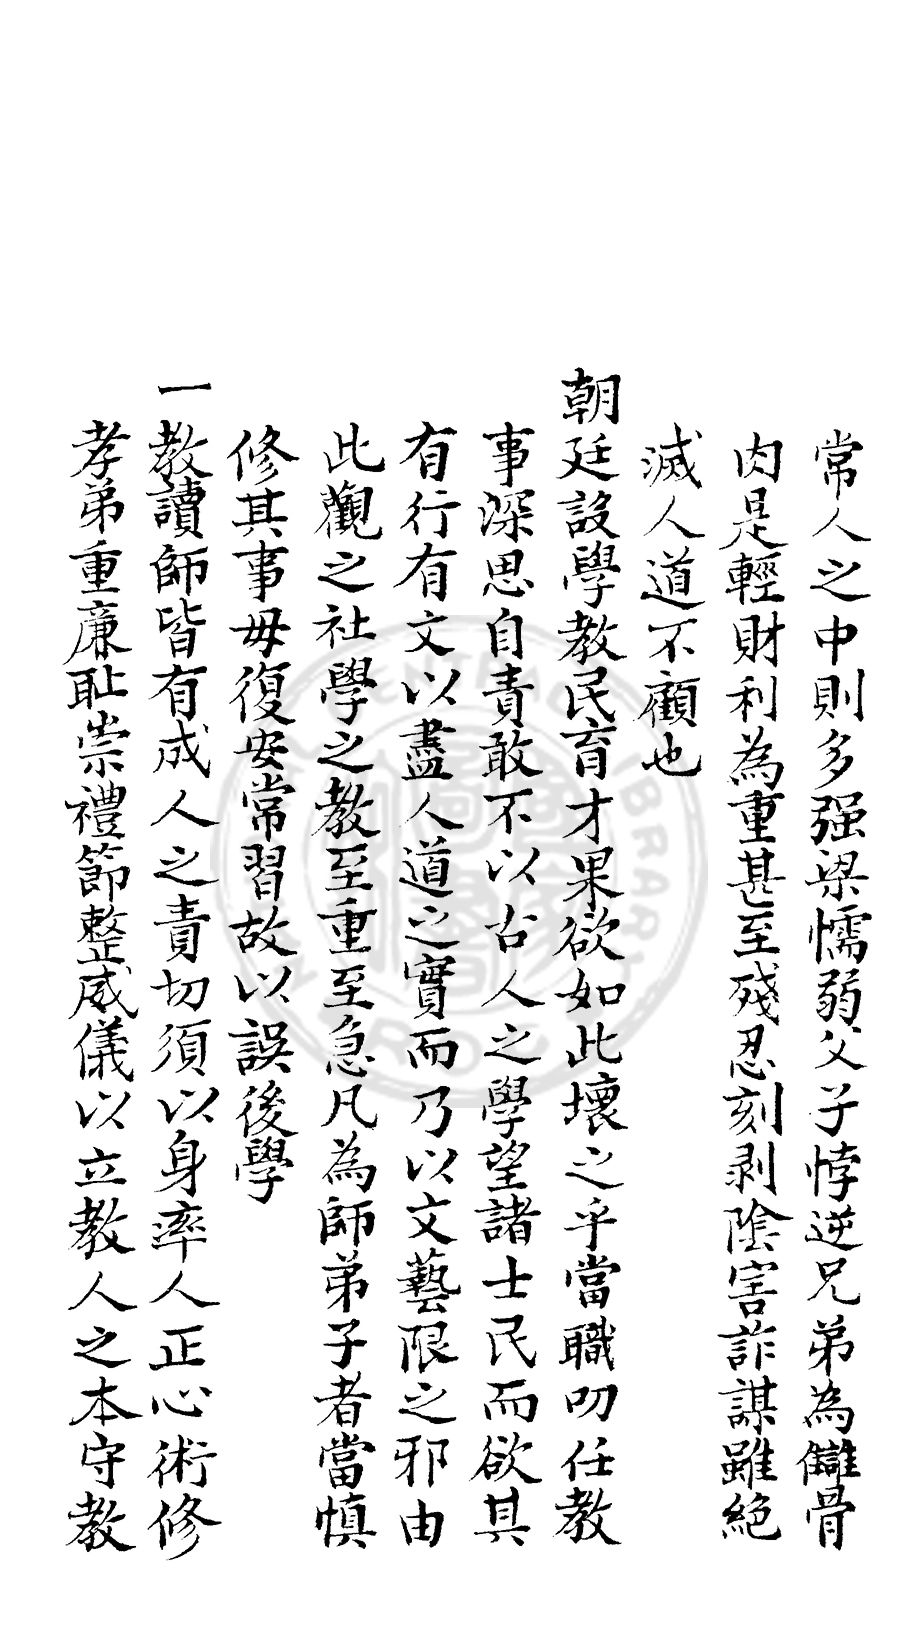 常人之中則多强梁懦弱父子悖逆兄弟為讎骨
肉是輕財利為重甚至殘忍刻剥陰害詐謀雖絶
滅人道不顧也
朝廷設學教民育才果欲如此壞之乎當職叨任教
事深思自責敢不以古人之學望諸士民而欲其
有行有文以盡人道之實而乃以文藝限之邪由
此觀之社學之教至重至急凡為師弟子者當慎
修其事毋復安常習故以誤後學
一教讀師皆有成人之責切須以身率人正心術修
孝弟重廉耻崇禮節整威儀以立教人之本守教
CENTRAL LIBRARY